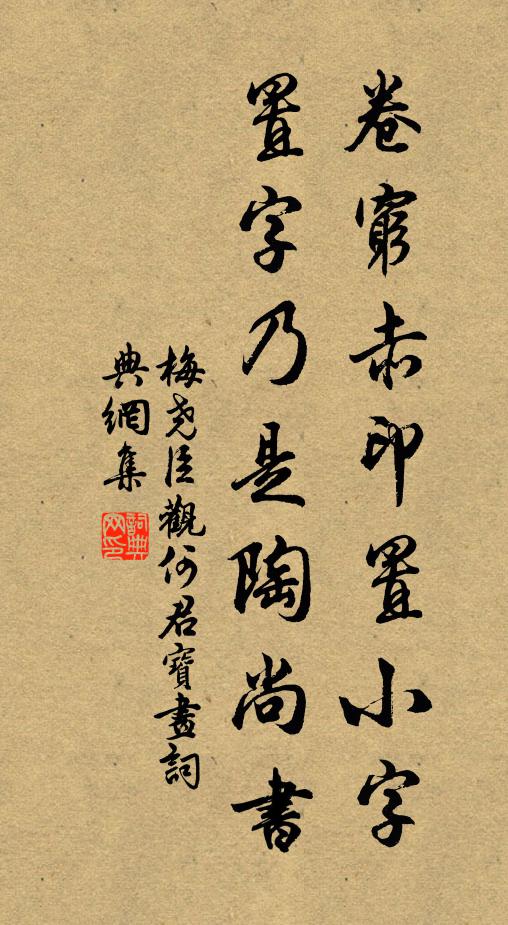 卷窮赤印置小字
置字乃是陶尚書
梅堯臣觀何君寶畫詞
典網集
詞典
网印